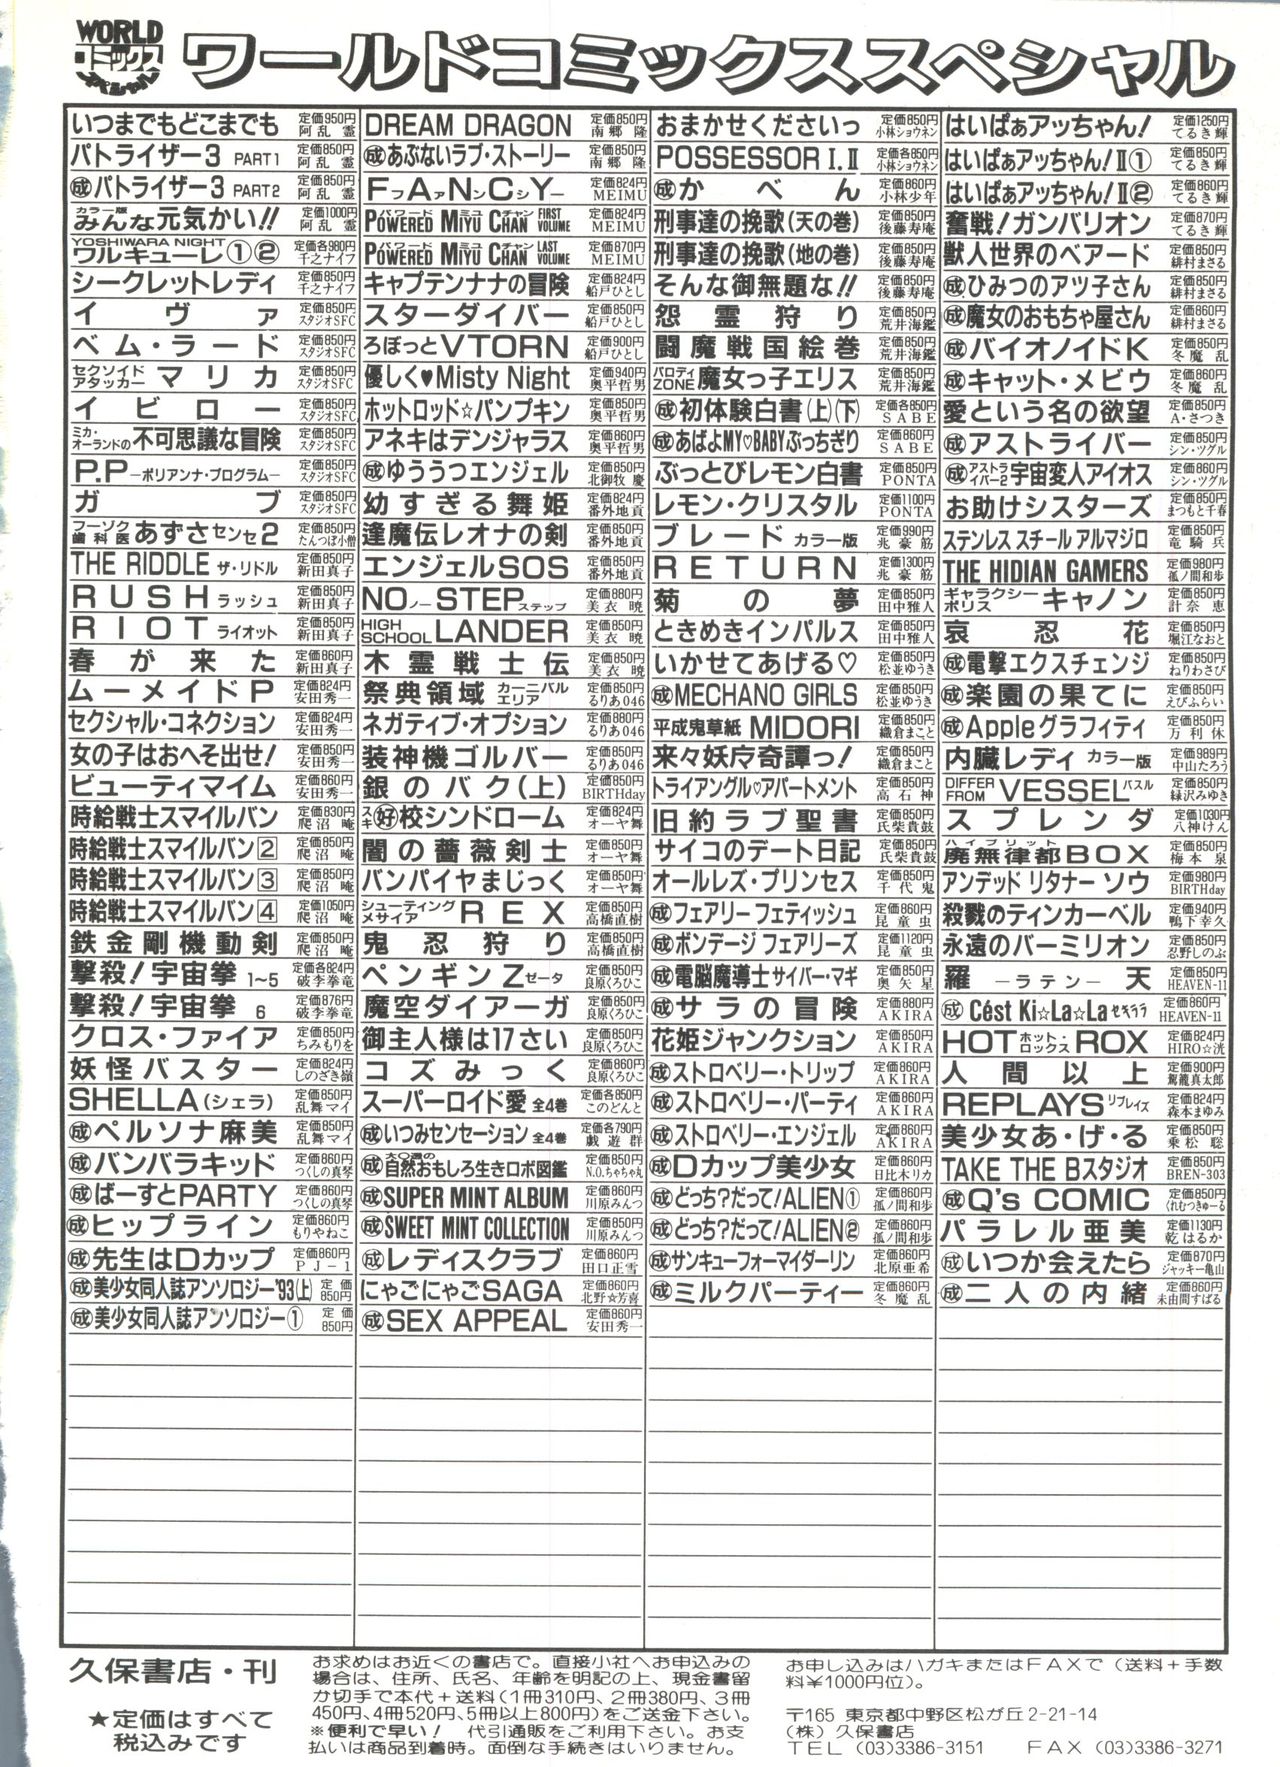 WORLD
コミックス
スペシャル
ワールドコミックススペシャル
いつまでもどこまでも 定価950円 阿乱 霊
パトライザー3 PART1 定価850円 阿乱 霊
㊅パトライザー3 PART2 定価850円 阿乱 霊
カラー版 みんな元気かい!! 定価1000円 阿乱 霊
YOSHIWARA NIGHT ワルキューレ①② 定価各980円 千之ナイフ
シークレットレディ 定価850円 千之ナイフ
イヴァ 定価850円 スタジオSFC
ベム・ラード 定価850円 スタジオSFC
セクソイドアタッカー マリカ 定価850円 スタジオSFC
イビロー 定価850円 スタジオSFC
ミカ・オーランドの不可思議な冒険 定価850円 スタジオSFC
P.P—ポリアンナ・プログラム— 定価850円 スタジオSFC
ガブ 定価850円 スタジオSFC
フーゾク歯科医 あずさセンセ2 定価850円 たんつぼ小僧
THE RIDDLE ザ・リドル 定価850円 新田真子
RUSH ラッシュ 定価850円 新田真子
RIOT ライオット 定価850円 新田真子
春が来た 定価860円 新田真子
ムーメイドP 定価824円 安田秀一
セクシャル・コネクション 定価824円 安田秀一
女の子はおへそ出せ! 定価850円 安田秀一
ビューティマイム 定価860円 安田秀一
時給戦士スマイルバン 定価830円 爬沼 唵
時給戦士スマイルバン2 定価850円 爬沼 唵
時給戦士スマイルバン3 定価850円 爬沼 唵
時給戦士スマイルバン4 定価1050円 爬沼 唵
鉄金剛機動剣 定価850円 爬沼 唵
撃殺!宇宙拳 1~5 定価各824円 破李拳竜
撃殺!宇宙拳 6 定価876円 破李拳竜
クロス・ファイア 定価850円 ちみもりを
妖怪バスター 定価824円 しのざき嶺
SHELLA(シェラ) 定価850円 乱舞マイ
成ペルソナ麻美 定価850円 乱舞マイ
成バンバラキッド 定価860円 つくしの真琴
成ばーすとPARTY 定価860円 つくしの真琴
成ヒップライン 定価860円 もりやねこ
成先生はDカップ 定価860円 PJ-1
成美少女同人誌アンソロジー'93(上) 定価850円
成美少女同人誌アンソロジー① 定価850円
DREAM DRAGON 定価850円 南郷 隆
成あぶないラブ・ストーリー 定価850円 南郷 隆
FファAンNシCィY— 定価824円 MEIMU
パワード ミユ チャン POWERED MIYU CHAN FIRST VOLUME 定価824円 MEIMU
パワード ミユ チャン POWERED MIYU CHAN LAST VOLUME 定価870円 MEIMU
キャプテンナナの冒険 定価824円 船戸ひとし
スターダイバー 定価850円 船戸ひとし
ろぼっとVTORN 定価900円 船戸ひとし
優しく♥Misty Night 定価940円 奥平哲男
ホットロッド☆パンプキン 定価850円 奥平哲男
アネキはデンジャラス 定価860円 奥平哲男
成ゆううつエンジェル 定価850円 北御牧 慶
幼すぎる舞姫 定価824円 番外地貢
逢魔伝レオナの剣 定価850円 番外地貢
エンジェルSOS 定価850円 番外地貢
NOノーSTEPステップ 定価880円 美衣 暁
HIGH SCHOOL LANDER 定価850円 美衣 暁
木霊戦士伝 定価850円 美衣 暁
祭典領域 カーニバルエリア 定価850円 るりあ046
ネガティブ・オプション 定価880円 るりあ046
装神機ゴルバー 定価850円 るりあ046
銀のバク(上) 定価850円 BIRTHday
スキ好校シンドローム 定価850円 オーヤ舞
闇の薔薇剣士 定価850円 オーヤ舞
バンパイヤまじっく 定価850円 オーヤ舞
シューティングメサイア REX 定価850円 高橋直樹
鬼忍狩り 定価850円 高橋直樹
ペンギンZゼータ 定価850円 良原くろひこ
魔空ダイアーガ 定価850円 良原くろひこ
御主人様は17さい 定価850円 良原くろひこ
コズみっく 定価860円 良原くろひこ
スーパーロイド愛 全4巻 定価各850円 このどんと
成いつみセンセーション 全4巻 定価各790円 戯遊群
成大〇週の自然おもしろ生きロボ図鑑 定価850円 N.O.ちゃちゃ丸
成SUPER MINT ALBUM 定価860円 川原みんつ
成SWEET MINT COLLECTION 定価850円 川原みんつ
成レディスクラブ 定価860円 田口正雪
にゃごにゃごSAGA 定価860円 北野☆芳喜
成SEX APPEAL 定価860円 安田秀一
おまかせくださいっ 定価850円 小林ショウネン
POSSESSOR I.II 定価各850円 小林ショウネン
成かべん 定価860円 小林少年
刑事達の挽歌(天の巻) 定価850円 後藤寿庵
刑事達の挽歌(地の巻) 定価850円 後藤寿庵
そんな御無題な!! 定価850円 後藤寿庵
怨霊狩り 定価850円 荒井海鑑
闘魔戦国絵巻 定価850円 荒井海鑑
パロディZONE 魔女っ子エリス 定価850円 荒井海鑑
成初体験白書(上)(下) 定価各850円 SABE
成あばよMY♡BABYぶっちぎり 定価860円 SABE
ぶっとびレモン白書 定価850円 PONTA
レモン・クリスタル 定価1100円 PONTA
ブレード カラー版 定価990円 兆豪筋
RETURN 定価1300円 兆豪筋
菊の夢 定価850円 田中雅人
ときめきインパルス 定価850円 田中雅人
いかせてあげる♡ 定価850円 松並ゆうき
成MECHANO GIRLS 定価850円 松並ゆうき
平成鬼草紙 MIDORI 定価850円 織倉まこと
来々妖序奇譚っ! 定価850円 織倉まこと
トライアングル♡アパートメント 定価850円 高石神
旧約ラブ聖書 定価850円 氏柴貴鼓
サイコのデート日記 定価850円 氏柴貴鼓
オールレズ・プリンセス 定価850円 千代鬼
成フェアリーフェティッシュ 定価860円 昆童虫
成ボンデージ フェアリーズ 定価1120円 昆童虫
成電脳魔導士サイバー・マギ 定価850円 奥矢星
成サラの冒険 定価880円 AKIRA
花姫ジャンクション 定価850円 AKIRA
成ストロベリー・トリップ 定価860円 AKIRA
成ストロベリー・パーティ 定価860円 AKIRA
成ストロベリー・エンジェル 定価860円 AKIRA
成Dカップ美少女 定価860円 日比木リカ
成どっち?だって!ALIEN① 定価860円 孤ノ間和歩
成どっち?だって!ALIEN② 定価860円 孤ノ間和歩
成サンキューフォーマイダーリン 定価860円 北原亜希
成ミルクパーティー 定価860円 冬魔乱
はいぱぁアッちゃん! 定価1250円 てるき輝
はいぱぁアッちゃん!II① 定価850円 てるき輝
はいぱぁアッちゃん!II② 定価860円 てるき輝
奮戦!ガンバリオン 定価870円 てるき輝
獣人世界のベアード 定価850円 緋村まさる
成ひみつのアツ子さん 定価860円 緋村まさる
成魔女のおもちゃ屋さん 定価850円 緋村まさる
成バイオノイドK 定価850円 冬魔乱
成キャット・メビウ 定価860円 冬魔乱
愛という名の欲望 定価850円 A・さつき
成アストライバー 定価850円 シン・ツグル
成アストライバー2 宇宙変人アイオス 定価860円 シン・ツグル
お助けシスターズ 定価850円 まつもと千春
ステンレス スチール アルマジロ 定価850円 竜騎兵
THE HIDIAN GAMERS 定価980円 孤ノ間和歩
ギャラクシーポリス キャノン 定価850円 計奈 恵
哀忍花 定価850円 堀江なおと
成電撃エクスチェンジ 定価850円 ねりわさび
成楽園の果てに 定価850円 えびふらい
成Appleグラフィティ 定価850円 万利休
内臓レディ カラー版 定価989円 中山たろう
DIFFER FROM VESSELバスル 定価850円 緑沢みゆき
スプレンダ 定価1030円 八神けん
ハイブリット 廃無律都BOX 定価850円 梅本 泉
アンデッド リタナー ソウ 定価980円 BIRTHday
殺戮のティンカーベル 定価940円 鴨下幸久
永遠のバーミリオン 定価850円 忍野しのぶ
羅—ラテン—天 定価850円 HEAVEN-11
成Cést Ki☆La☆La セキララ 定価860円 HEAVEN-11
HOTホット・ロックスROX 定価824円 HIRO☆洸
人間以上 定価900円 駕籠真太郎
REPLAYSリプレイズ 定価824円 森本まゆみ
美少女あ・げ・る 定価850円 乗松 聡
TAKE THE Bスタジオ 定価850円 BREN-303
成Q's COMIC 定価850円 くれむつきゅーる
パラレル亜美 定価1130円 乾はるか
成いつか会えたら 定価870円 ジャッキー亀山
成二人の内緒 定価860円 未由間すばる
久保書店・刊
★定価はすべて
税込みです
お求めはお近くの書店で。直接小社へお申込みの
場合は、住所、氏名、年齢を明記の上、現金書留
か切手で本代+送料(1冊310円、2冊380円、3冊
450円、4冊520円、5冊以上800円)をご送金下さい。
※便利で早い! 代引通販をご利用下さい。お支
払いは商品到着時。面倒な手続きはいりません。
お申し込みはハガキまたはFAXで(送料+手数
料¥1000円位)。
〒165 東京都中野区松が丘2-21-14
(株)久保書店
TEL (03)3386-3151 FAX (03)3386-3271